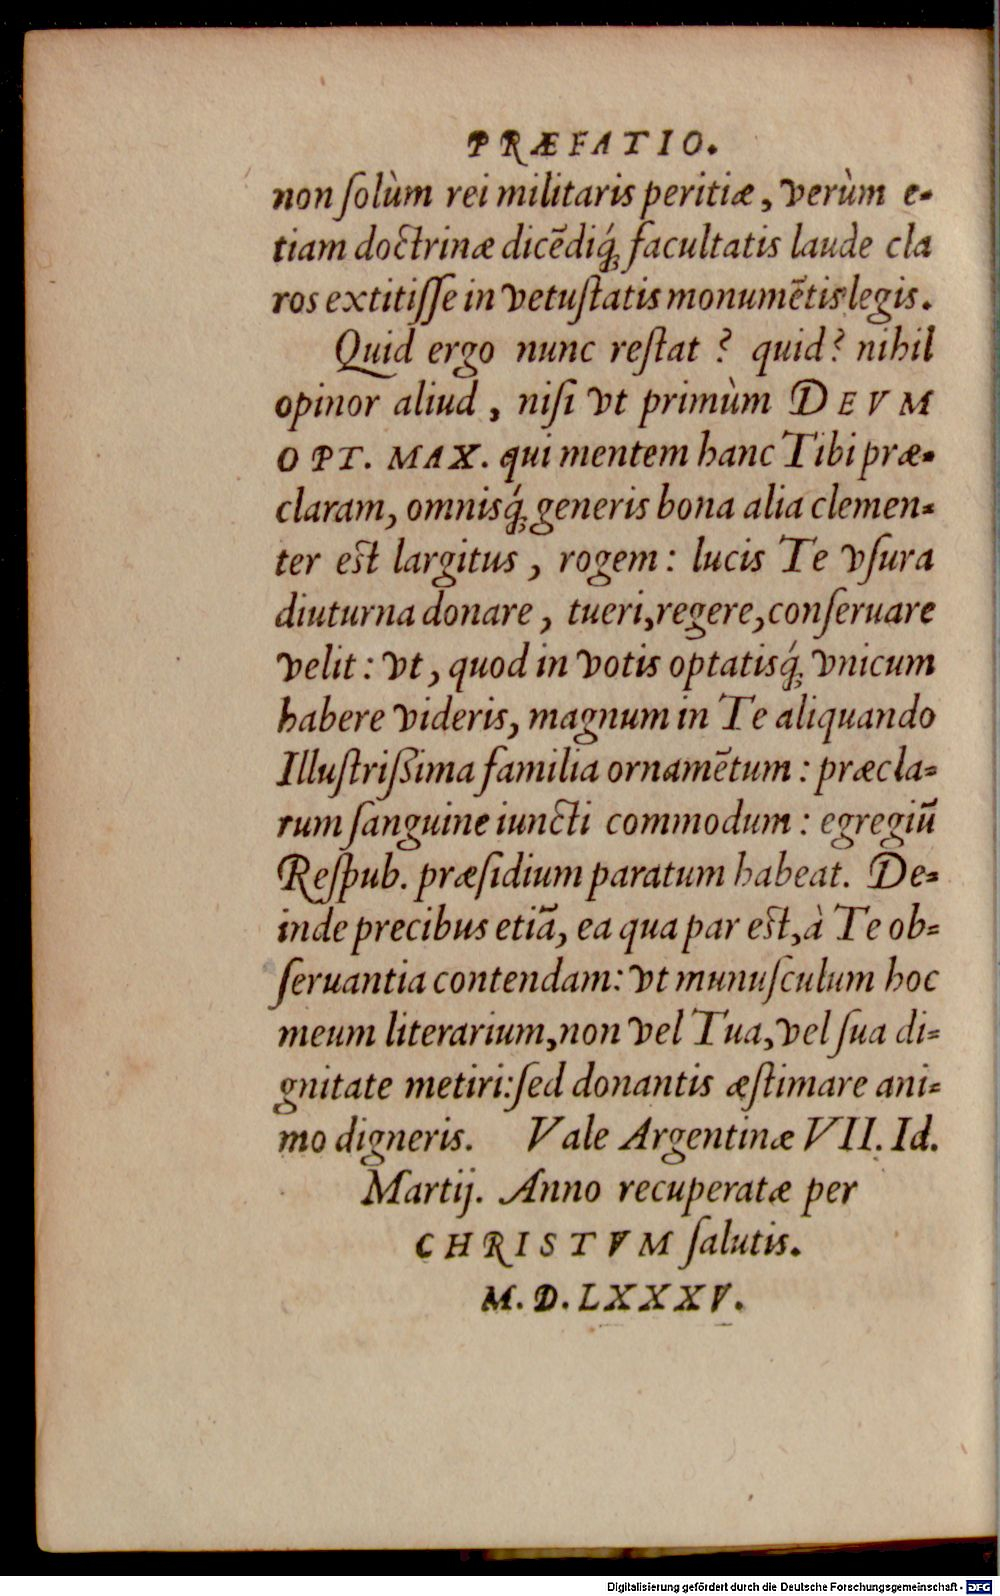 PRÆFATIO.
non ſolùm rei militaris peritiæ, verùm e-
tiam doctrinæ dicēdiq́; facultatis laude cla
ros extitiſſe in vetuſtatis monumētis legis.
Quid ergo nunc reſtat? quid? nihil
opinor aliud, niſi vt primùm DEVM
OPT. MAX. qui mentem hanc Tibi præ-
claram, omnisq́; generis bona alia clemen-
ter est largitus, rogem: lucis Te vſura
diuturna donare, tueri, regere, conſeruare
velit: vt, quod in votis optatisq́; vnicum
habere videris, magnum in Te aliquando
Illuſtriſſima familia ornamētum: præcla-
rum ſanguine iuncti commodum: egregiū
Reſpub. præſidium paratum habeat. De-
inde precibus etiā, ea qua par est, à Te ob-
ſeruantia contendam: vt munuſculum hoc
meum literarium, non vel Tua, vel ſua di-
gnitate metiri: ſed donantis æſtimare ani-
mo digneris. Vale Argentinæ VII. Id.
Martij. Anno recuperatæ per
CHRISTVM ſalutis.
M. D. LXXXV.
Digitalisierung gefördert durch die Deutsche Forschungsgemeinschaft - DFG